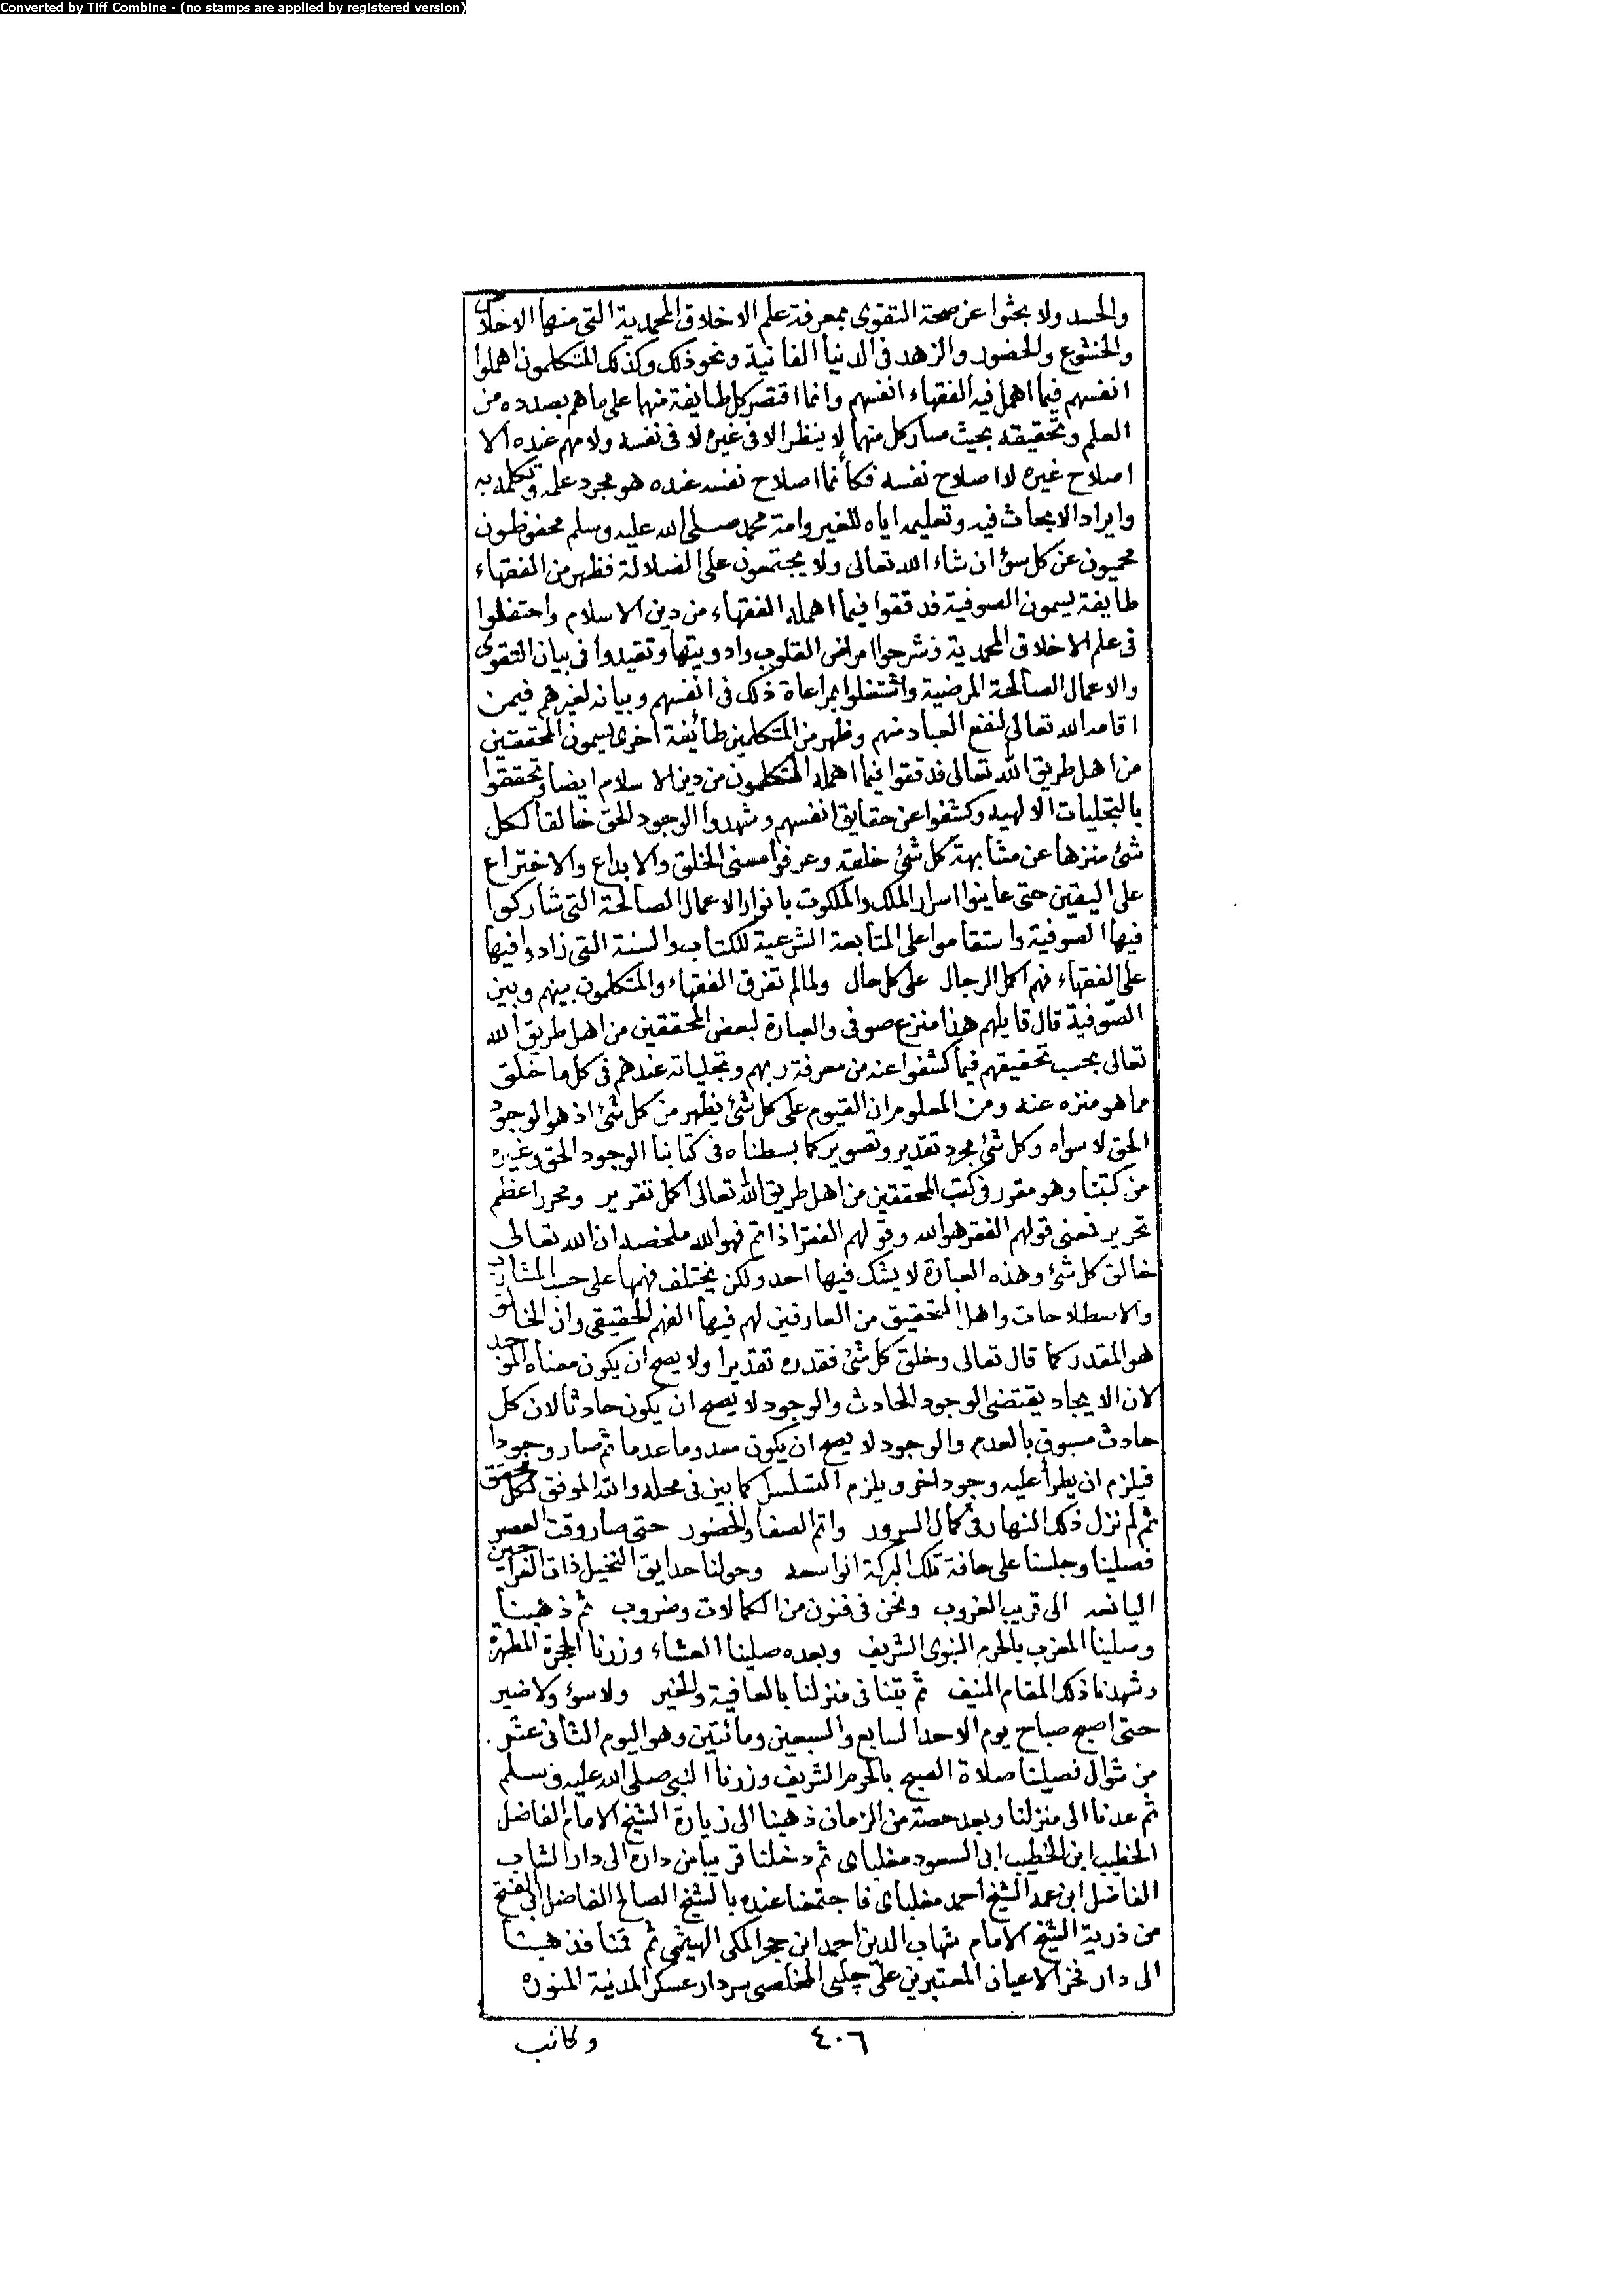 Converted by Tiff Combine - (no stamps are applied by registered version)
والحسد ولا بحثوا عن صحة التقوى بمعرفة علم الاخلاق المحمدية التى منها الاخلاص
والخشوع والحضور والزهد فى الدنيا الفانية ونحو ذلك وكذلك المتكلمون اهملوا
انفسهم فيما اهمل فيه الفقهاء انفسهم وانما اقتصر كل طايفة منها على ما هم بصدده من
العلم وتحقيقه بحيث صار كل منهما لا ينظر الا فى غيره لا فى نفسه ولا مهم عنده الا
اصلاح غيره لا اصلاح نفسه فكأنما اصلاح نفسه عنده هو مجرد علمه وتكلمه به
وايراد الابحاث فيه وتعليمه اياه للغير وامة محمد صلى الله عليه وسلم محفوظون
محميون عن كل سؤ ان شاء الله تعالى ولا يجتمعون على الضلالة فظهر من الفقهاء
طايفة يسمون الصوفية فدققوا فيما اهمله الفقهاء من دين الاسلام واحتفلوا
فى علم الاخلاق المحمدية فشرحوا امراض القلوب وادويتها وتقيدوا فى بيان التقوى
والاعمال الصالحة المرضية واشتغلوا بمراعاة ذلك فى انفسهم وبيانه لغيرهم فيمن
اقامه الله تعالى لنفع العباد منهم وظهر من المتكلمين طائفة اخرى يسمون المحققين
من اهل طريق الله تعالى فدققوا فيما اهمله المتكلمون من دين الاسلام ايضا وتحققوا
بالتجليات الالهيه وكشفوا عن حقايق انفسهم وشهدوا الوجود للحق خالقا لكل
شئ منزها عن مشابهة كل شئ خلقه وعرفوا معنى الخلق والابداع والاختراع
على اليقين حتى عاينوا اسرار الملك والملكوت بانوار الاعمال الصالحة التى شاركوا
فيها الصوفية واستقاموا على المتابعة الشرعية للكتاب والسنة التى زادوا فيها
على الفقهاء فهم اكمل الرجال على كل حال ولما لم تفرق الفقهاء والمتكلمون بينهم وبين
الصوفية قال قايلهم هذا منزع صوفى والعبارة لبعض المحققين من اهل طريق الله
تعالى بحسب تحقيقهم فيما كشفوا عنه من معرفة ربهم وتجلياته عندهم فى كل ما خلق
مما هو منزه عنه ومن المعلوم ان القيوم على كل شئ يظهر من كل شئ اذ هو الوجود
الحق لا سواه وكل شئ مجرد تقدير وتصوير كما بسطناه فى كتابنا الوجود الحق وغيره
من كتبنا وهو مقرر فى كتب المحققين من اهل طريق الله تعالى اكمل تقرير ومحرر اعظم
تحرير فمعنى قولهم الفقر هو الله وقولهم الفقر اذا تم فهو الله ملخصه ان الله تعالى
خالق كل شئ وهذه العبارة لا يشك فيها احد ولكن يختلف فهمها على حسب المشارب
والاصطلاحات واهل التحقيق من العارفين لهم فيها الفهم الحقيقى وان الخالق
هو المقدر كما قال تعالى وخلق كل شئ فقدره تقديرا ولا يصح ان يكون معناه الموجد
لان الايجاد يقتضى الوجود الحادث والوجود لا يصح ان يكون حادثا لان كل
حادث مسبوق بالعدم والوجود لا يصح ان يكون معدوما عدما ثم صار وجودا
فيلزم ان يطرأ عليه وجود اخر ويلزم التسلسل كما بين فى محله والله الموفق لكل محقق
ثم لم نزل ذلك النهار فى كمال السرور واتم الصفا والحضور حتى صار وقت العصر
فصلينا وجلسنا على حافة تلك البركة الواسعه وحولنا حدايق النخيل ذات
اليانعه الى قريب الغروب ونحن فى فنون من الكمالات وضروب ثم ذهبنا
وصلينا المغرب بالحرم النبوى الشريف وبعده صلينا العشاء وزرنا الحجرة المطهرة
وشهدنا ذلك المقام المنيف ثم بتنا فى منزلنا بالعافية والخير ولا سوء ولا ضير
حتى اصبح صباح يوم الاحد السابع والسبعين ومائتين وهو اليوم الثانى عشر
من شوال فصلينا صلاة الصبح بالحرم الشريف وزرنا النبى صلى الله عليه وسلم
ثم عدنا الى منزلنا وبعد حصة من الزمان ذهبنا الى زيارة الشيخ الامام الفاضل
الخطيب ابن الخطيب ابى السعود مغلباى ثم دخلنا قريبا من داره الى دار الشاب
الفاضل ابن عمه الشيخ احمد مغلباى فاجتمعنا عنده بالشيخ الصالح الفاضل ابى الفتح
من ذرية الشيخ الامام شهاب الدين احمد ابن حجر المكى الهيثمى ثم قمنا فذهبنا
الى دار فخر الاعيان المعتبرين على چلبى المخلصى سردار عسكر المدنية المنوره
٤٠٦
وكاتب